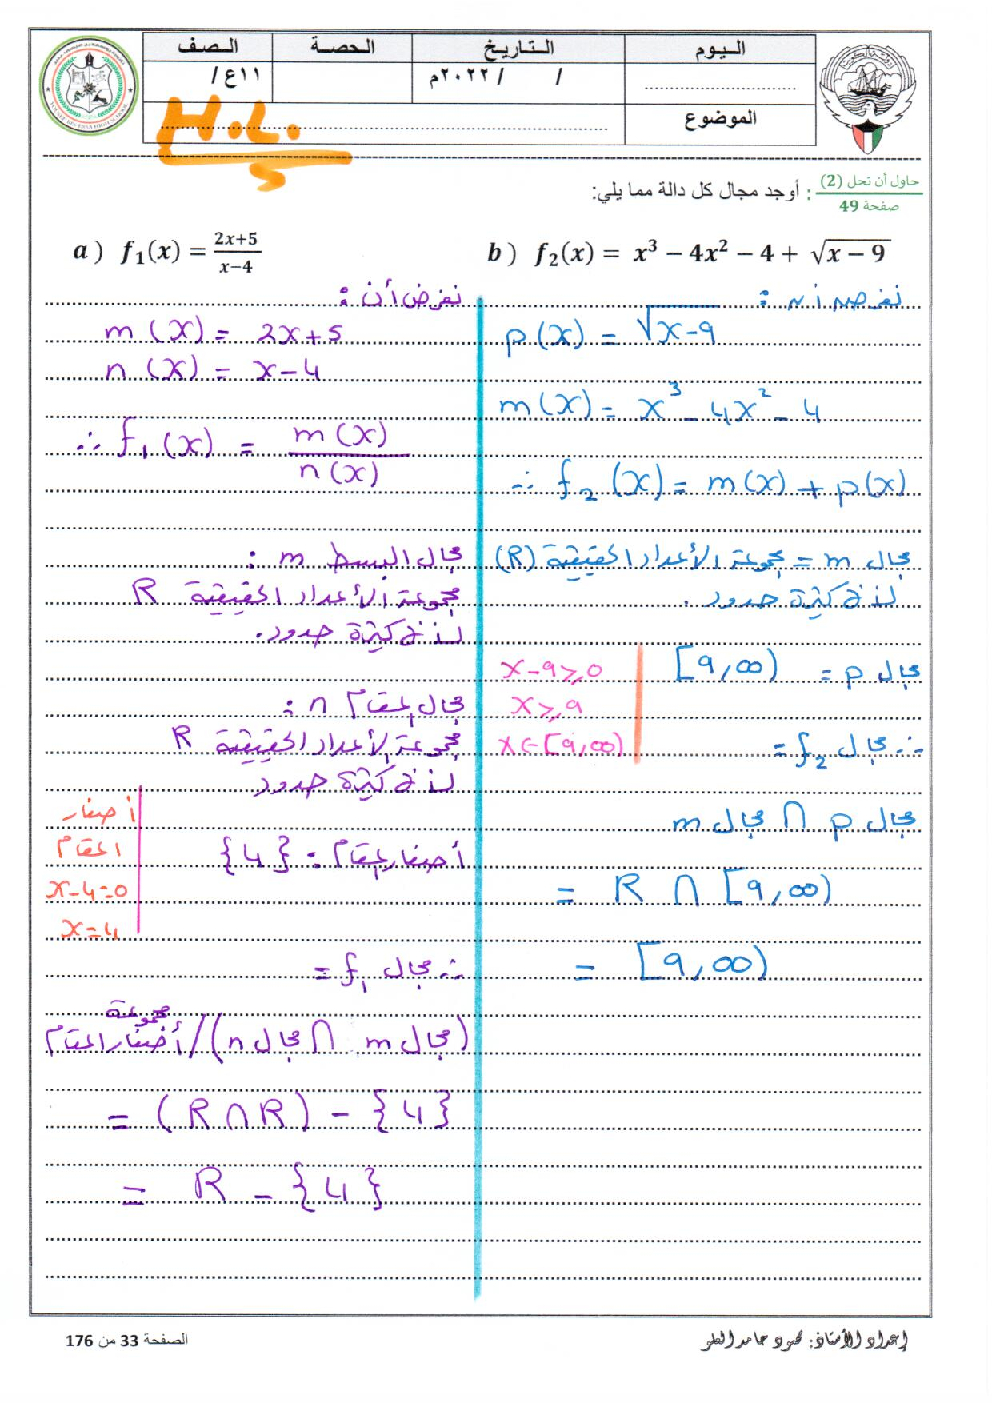 اليوم
التاريخ
الحصة
الصف
/ / ٢٠٢٢م
١١ع /
الموضوع
H.W.
حاول أن تحل (2)
صفحة 49
: أوجد مجال كل دالة مما يلي:
a ) f₁(x) = \frac{2x+5}{x-4}
b ) f₂(x) = x³ − 4x² − 4 + √(x − 9)
نفرض أن :
m (x) = 2x+5
n (x) = x-4
∴ f₁(x) = \frac{m(x)}{n(x)}
مجال البسط m :
مجموعة الأعداد الحقيقية R
لأنها كثيرة حدود.
مجال المقام n :
مجموعة الأعداد الحقيقية R
لأنها كثيرة حدود
أصفار المقام = {4}
أصفار
المقام
x-4=0
x=4
∴ مجال f₁ =
(مجال m ∩ مجال n) / مجموعة أصفار المقام
= (R∩R) - {4}
= R - {4}
نفرض أن :
p(x) = √(x-9)
m(x) = x³ - 4x² - 4
∴ f₂(x) = m(x) + p(x)
مجال m = مجموعة الأعداد الحقيقية (R)
لأنها كثيرة حدود.
مجال p = [9,∞)
x-9≥0
x≥9
x∈[9,∞)
∴ مجال f₂ =
مجال p ∩ مجال m
= R ∩ [9,∞)
= [9,∞)
إعداد الأستاذ: محمود حامد
الصفحة 33 من 176